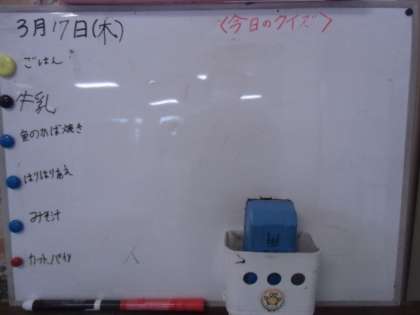 3月17日(木)
〈今日のクイズ〉
ごはん
牛乳
魚のかば焼き
はりはりあえ
みそ汁
カットパイン